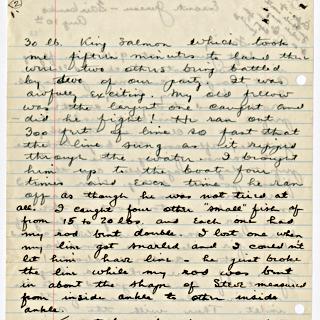 (2)
30 lb. King Salmon which took
me fifteen minutes to land there
were two others being battled
by two of our party. It was
awfully exciting. My old fellow
was the largest one caught and
did he fight! He ran out
300 feet of line so fast that
the line sung as it ripped
through the water. I brought
him up to the boat four
times and each time he ran
off as though he was not tired at
all. I caught four other "small" fish of
from 15 to 20 lbs. and each one had
my rod bent double. I lost one when
my line got snarled and I couldn't
let him have line - he just broke
the line while my rod was bent
in about the shape of Steve measured
from inside ankle to other inside
ankle.